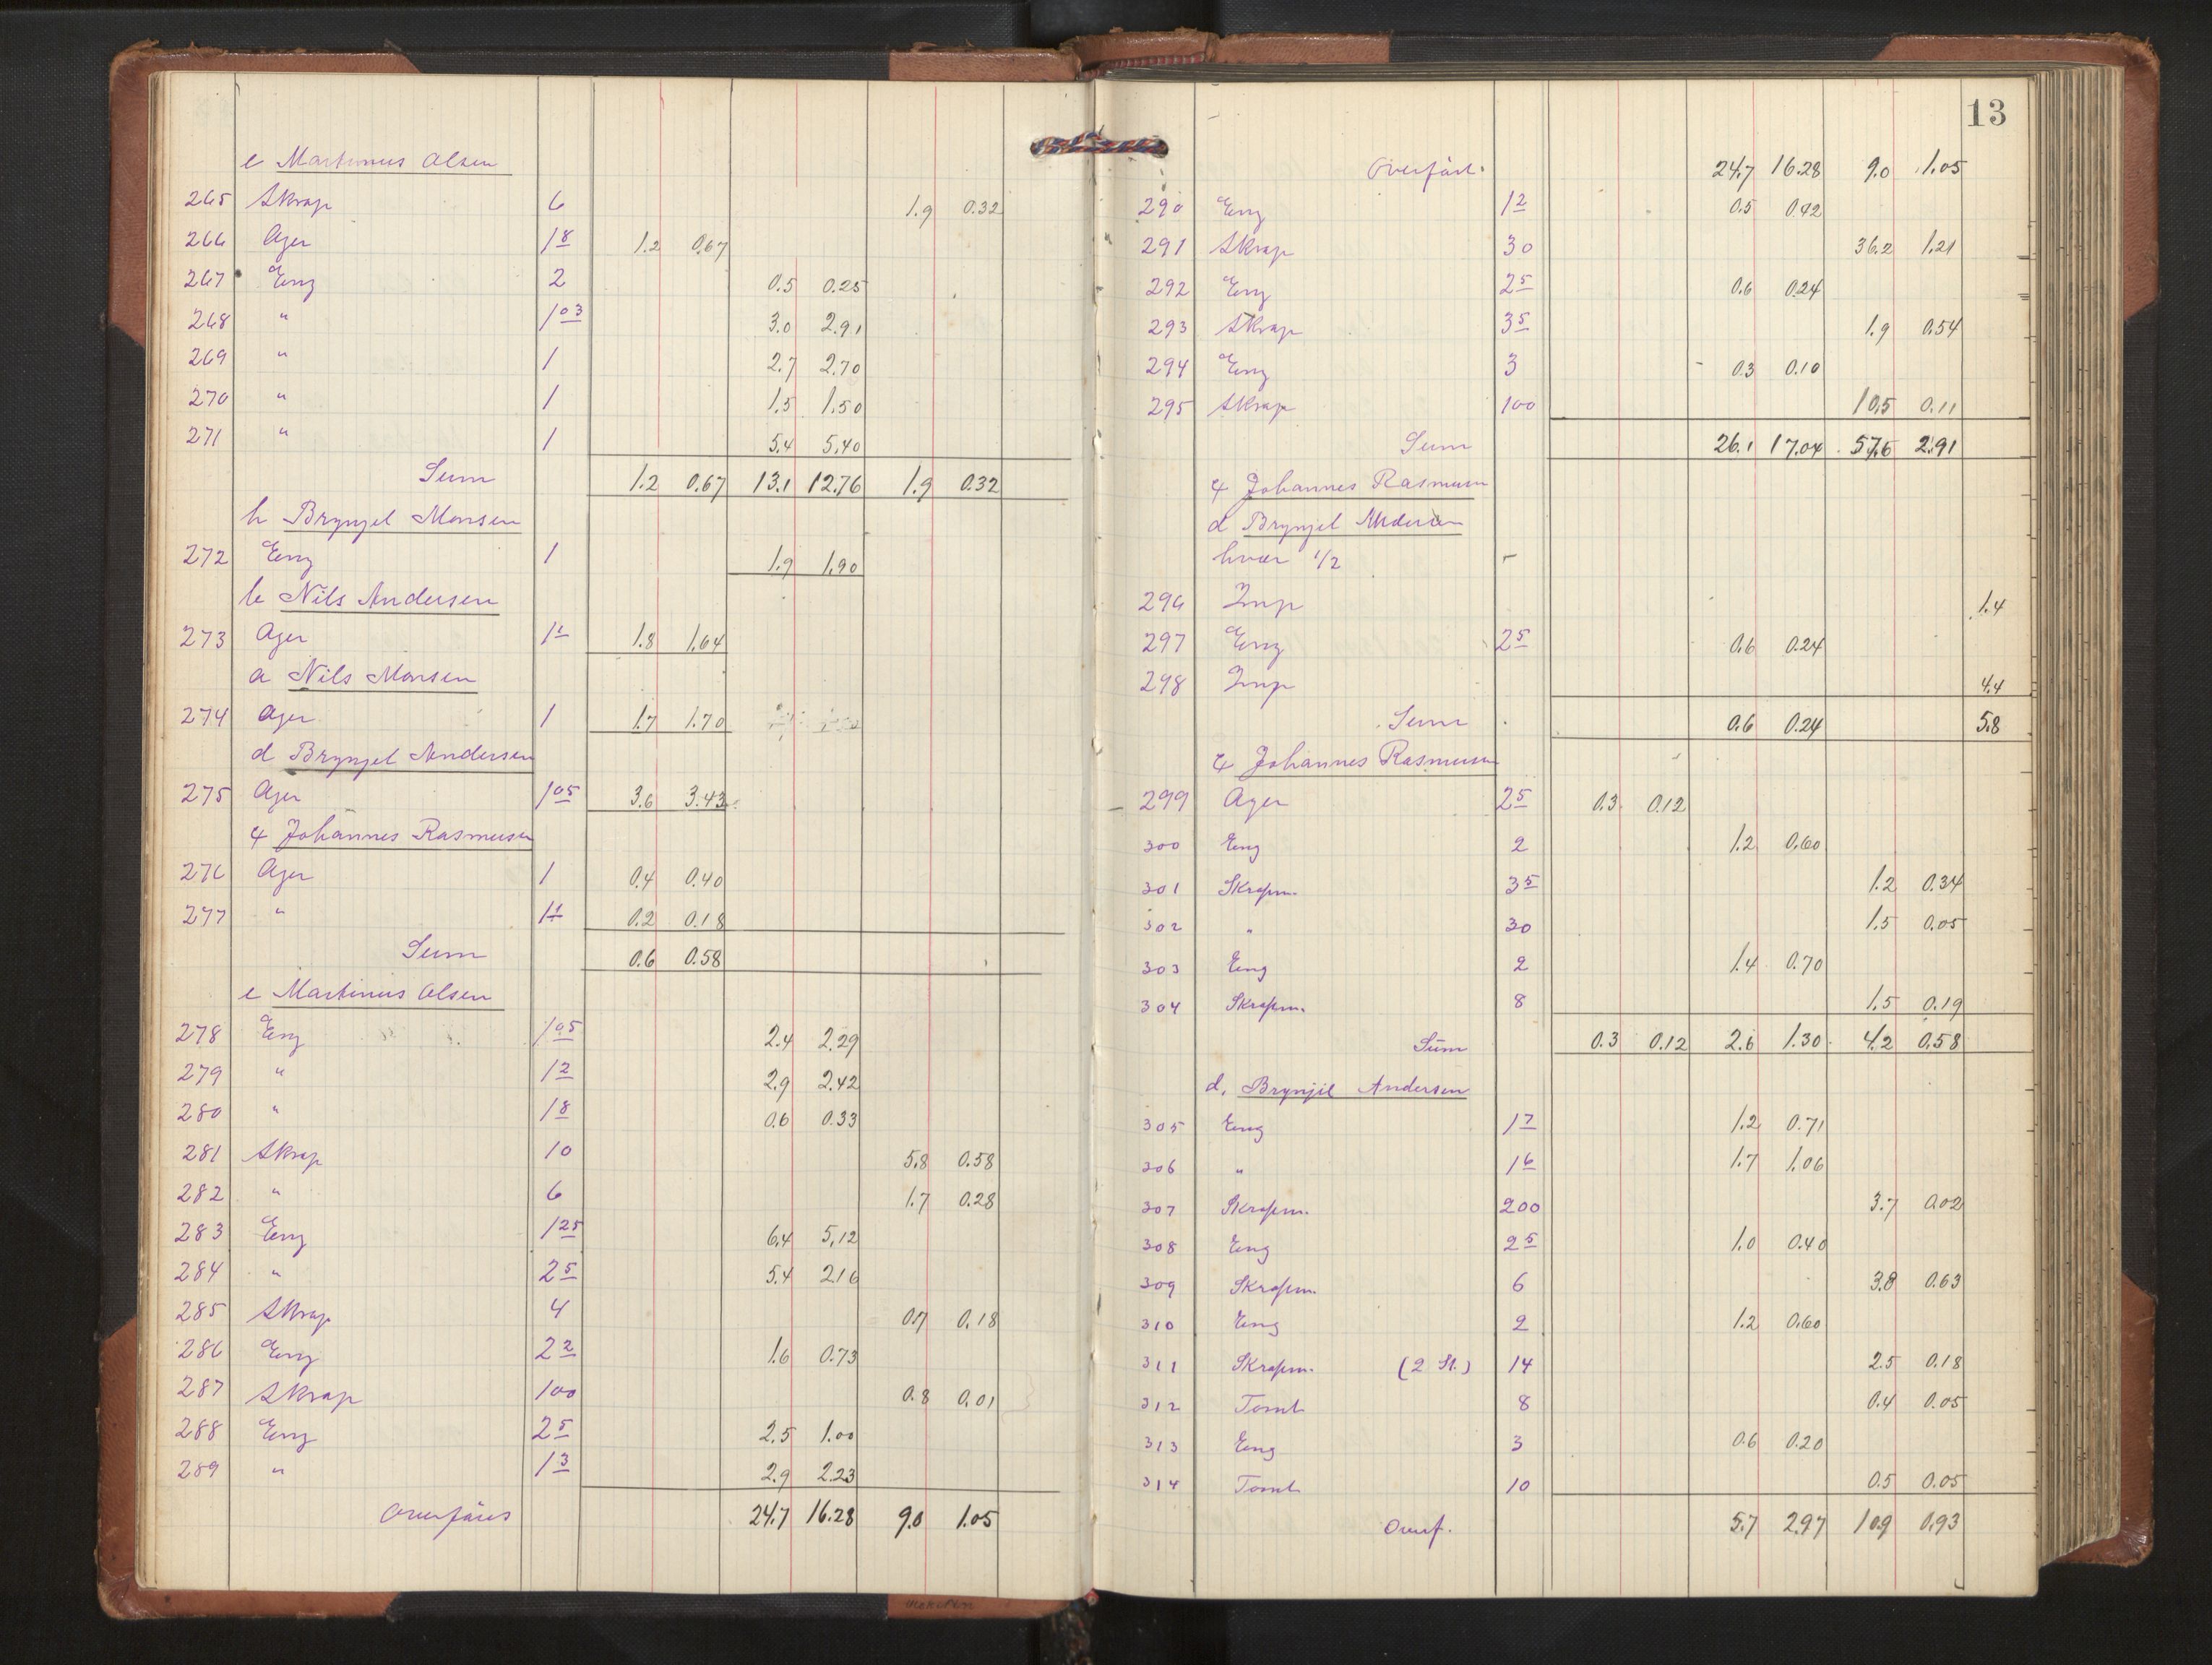 e Martinus Olsen
265 Skrap 6 1.9 0.32
266 Ager 1 8 1.2 0.67
267 Eng 2 0.5 0.25
268 " 1 03 3.0 2.91
269 " 1 2.7 2.70
270 " 1 1.5 1.50
271 " 1 5.4 5.40
Sum 1.2 0.67 13.1 12.76 1.9 0.32
h Brynjel Monsen
272 Eng 1 1.9 1.90
b Nils Andersen
273 Ager 1 1 1.8 1.64
a Nils Monsen
274 Ager 1 1.7 1.70
d Brynjel Andersen
275 Ager 1 05 3.6 3.43
4 Johannes Rasmusen
276 Ager 1 0.4 0.40
277 " 1 1 0.2 0.18
Sum 0.6 0.58
e Martinus Olsen
278 Eng 1 05 2.4 2.29
279 " 1 2 2.9 2.42
280 " 1 8 0.6 0.33
281 Skrap 10 5.8 0.58
282 " 6 1.7 0.28
283 Eng 1 25 6.4 5.12
284 " 2 5 5.4 2.16
285 Skrap 4 0.7 0.18
286 Eng 2 2 1.6 0.73
287 Skrap 100 0.8 0.01
288 Eng 2 5 2.5 1.00
289 " 1 3 2.9 2.23
Overføres 24.7 16.28 9.0 1.05
13
Overført. 24.7 16.28 9.0 1.05
290 Eng 1 2 0.5 0.42
291 Skrap 30 36.2 1.21
292 Eng 2 5 0.6 0.24
293 Skrap 3 5 1.9 0.54
294 Eng 3 0.3 0.10
295 Skrap 100 10.5 0.11
Sum 26.1 17.04 57.6 2.91
4 Johannes Rasmusen
d Brynjel Andersen
hver 1/2
296 Imp 1.4
297 Eng 2 5 0.6 0.24
298 Imp 4.4
Sum 0.6 0.24 5.8
4 Johannes Rasmusen
299 Ager 2 5 0.3 0.12
300 Eng 2 1.2 0.60
301 Skrapm. 3 5 1.2 0.34
302 " 30 1.5 0.05
303 Eng 2 1.4 0.70
304 Skrapm. 8 1.5 0.19
Sum 0.3 0.12 2.6 1.30 4.2 0.58
d. Brynjil Andersen
305 Eng 1 7 1.2 0.71
306 " 1 6 1.7 1.06
307 Skrapm. 200 3.7 0.02
308 Eng 2 5 1.0 0.40
309 Skrapm. 6 3.8 0.63
310 Eng 2 1.2 0.60
311 Skrapm. (2 St.) 14 2.5 0.18
312 Tomt 8 0.4 0.05
313 Eng 3 0.6 0.20
314 Tomt 10 0.5 0.05
Overf. 5.7 2.97 10.9 0.93